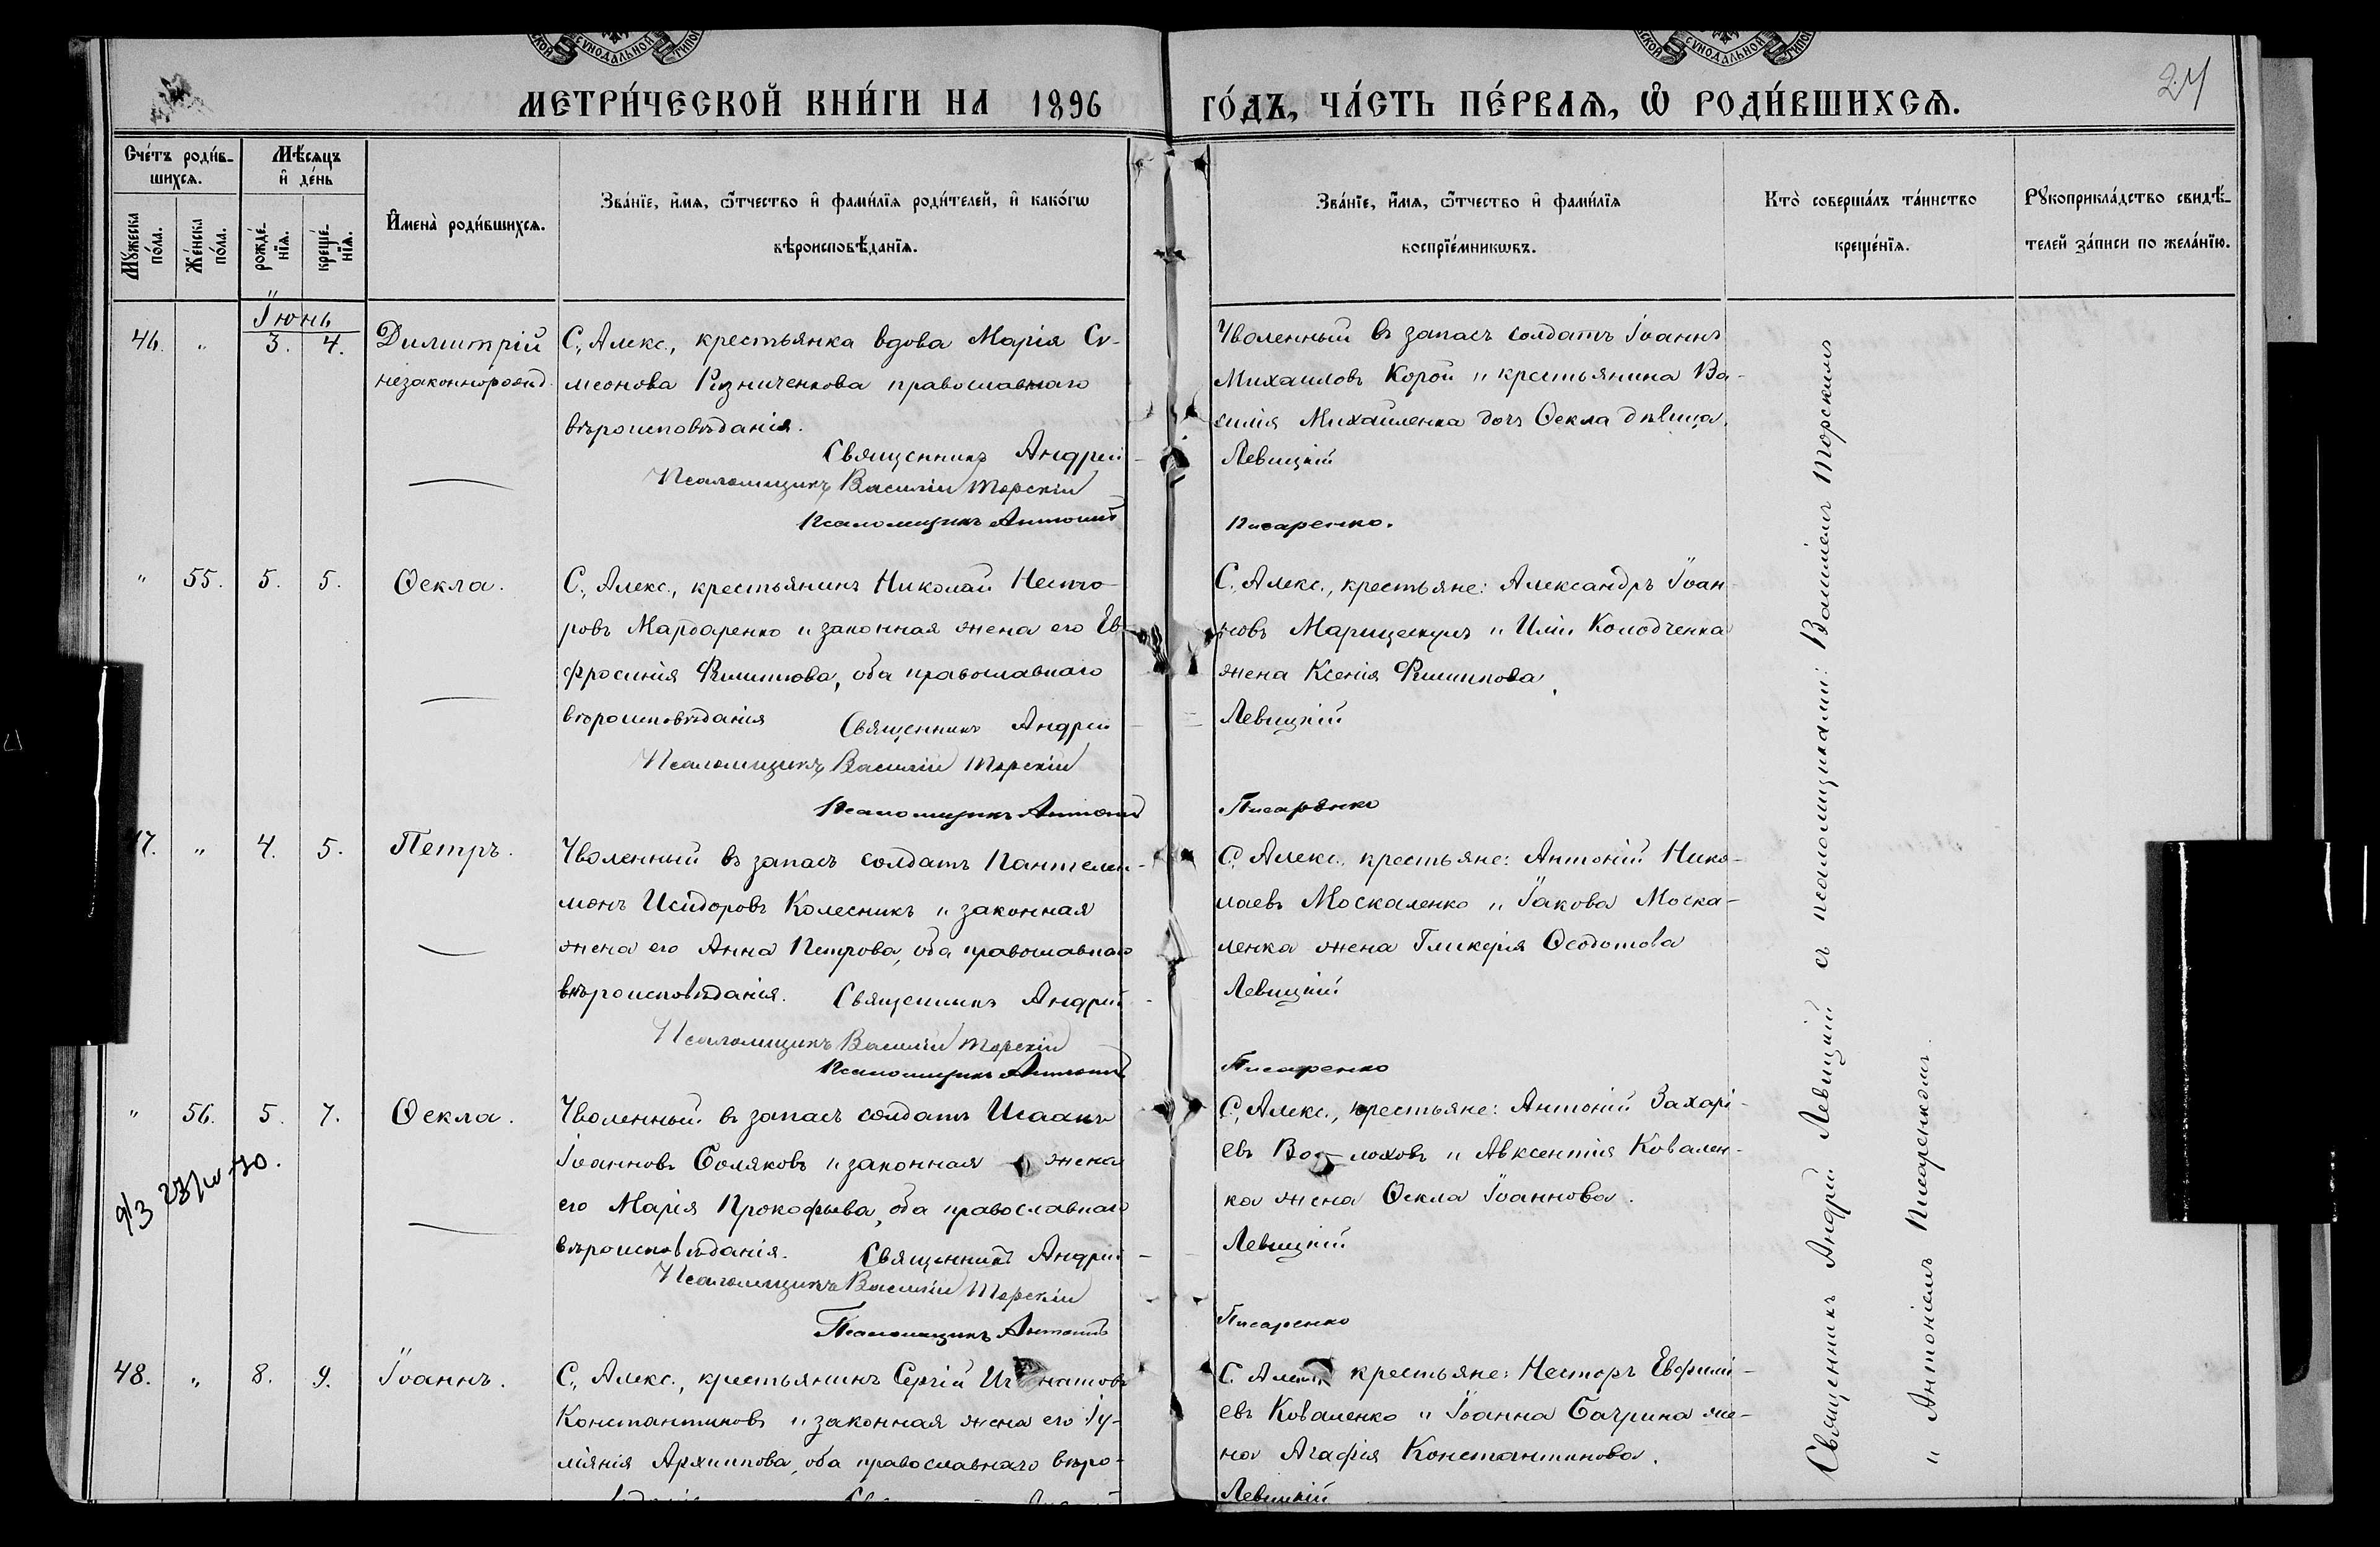 СУНОДАЛЬНОЙ
СУНОДАЛЬНОЙ
МЕТРИ́ЧЕСКОЙ КНИ́ГИ НА 1896 ГО́ДЪ, ЧА́СТЬ ПЕ́РВАѦ, Ѽ РОДИ́ВШИХСѦ.
24
Сче́тъ роди́в-
шихсѧ.
Мꙋжеска по́ла.
Же́нска по́ла.
Мѣ́сѧцъ
и҆ де́нь
рожде́-
нїѧ.
креще́-
нїѧ.
И҆мена̀ роди́вшихсѧ.
Зва́нїе, и҆́мѧ, ѻ҆́тчество и҆ фами́лїѧ роди́телей, и҆ како́гѡ
вѣроисповѣ́данїѧ.
Зва́нїе, и҆́мѧ, ѻ҆́тчество и҆ фами́лїѧ
воспрїе́мникѡвъ.
Кто̀ соверша́лъ та́инство
креще́нїѧ.
Рꙋкоприкла́дство свидѣ́-
телей за́писи по жела́нїю.
Іюнь
46. " 3. 4. Димитрій
незаконнорожд.
С., Алекс., крестьянка вдова Марія Си-
меонова Резниченкова православнаго
вѣроисповѣданія.
Священникъ Андрей
Псаломщикъ Василій Торскій
Псаломщикъ Антоній
Уволенный въ запасъ солдатъ Іоаннъ
Михаиловъ Корой и крестьянина Ва-
силія Михайленка дочь Ѳекла дѣвица.
Левицкій
Писаренко.
" 55. 5. 5. Ѳекла.
С., Алекс., крестьянинъ Николай Несто-
ровъ Мардаренко и законная жена его Ев-
фросинія Филиппова, оба православнаго
вѣроисповѣданія Священникъ Андрей
Псаломщикъ Василій Торскій
Псаломщикъ Антоній
С., Алекс., крестьяне: Александръ Іоан-
новъ и Иліи Колодченка
жена Ксенія Филиппова.
Левицкій
Писаренко
47. " 4. 5. Петръ.
Уволенный въ запасъ солдатъ Пантелеи-
монъ Исидоровъ Колесникъ и законная
жена его Анна Петрова, оба православнаго
вѣроисповѣданія. Священникъ Андрей
Псаломщикъ Василій Торскій
Псаломщикъ Антоній
С., Алекс., крестьяне: Антоній Нико-
лаевъ Москаленко и Іакова Моска-
ленка жена Гликерія Ѳеодотова
Левицкій
Писаренко
" 56. 5. 7. Ѳекла.
Уволенный въ запасъ солдатъ Исаакъ
Іоанновъ Соляковъ и законная жена
его Марія Прокофьева, оба православнаго
вѣроисповѣданія. Священникъ Андрей
Псаломщикъ Василій Торскій
Псаломщикъ Антоній
С., Алекс., крестьяне: Антоній Захарі-
евъ и Авксентія Ковален-
ка жена Ѳекла Іоаннова.
Левицкій
Писаренко
48. " 8. 9. Іоаннъ.
С., Алекс., крестьянинъ Сергій Игнатовъ
Константиновъ и законная жена его Іу-
ліянія Архиппова, оба православнаго вѣро-
С. Алекс., крестьяне: Несторъ Евфимі-
евъ Коваленко и Іоанна Багрина же-
на Агафія Константинова.
Левицкій
Священникъ Андрей Левицкій съ псаломщиками: Василіемъ Торскимъ
и Антоніемъ Писаренкомъ.